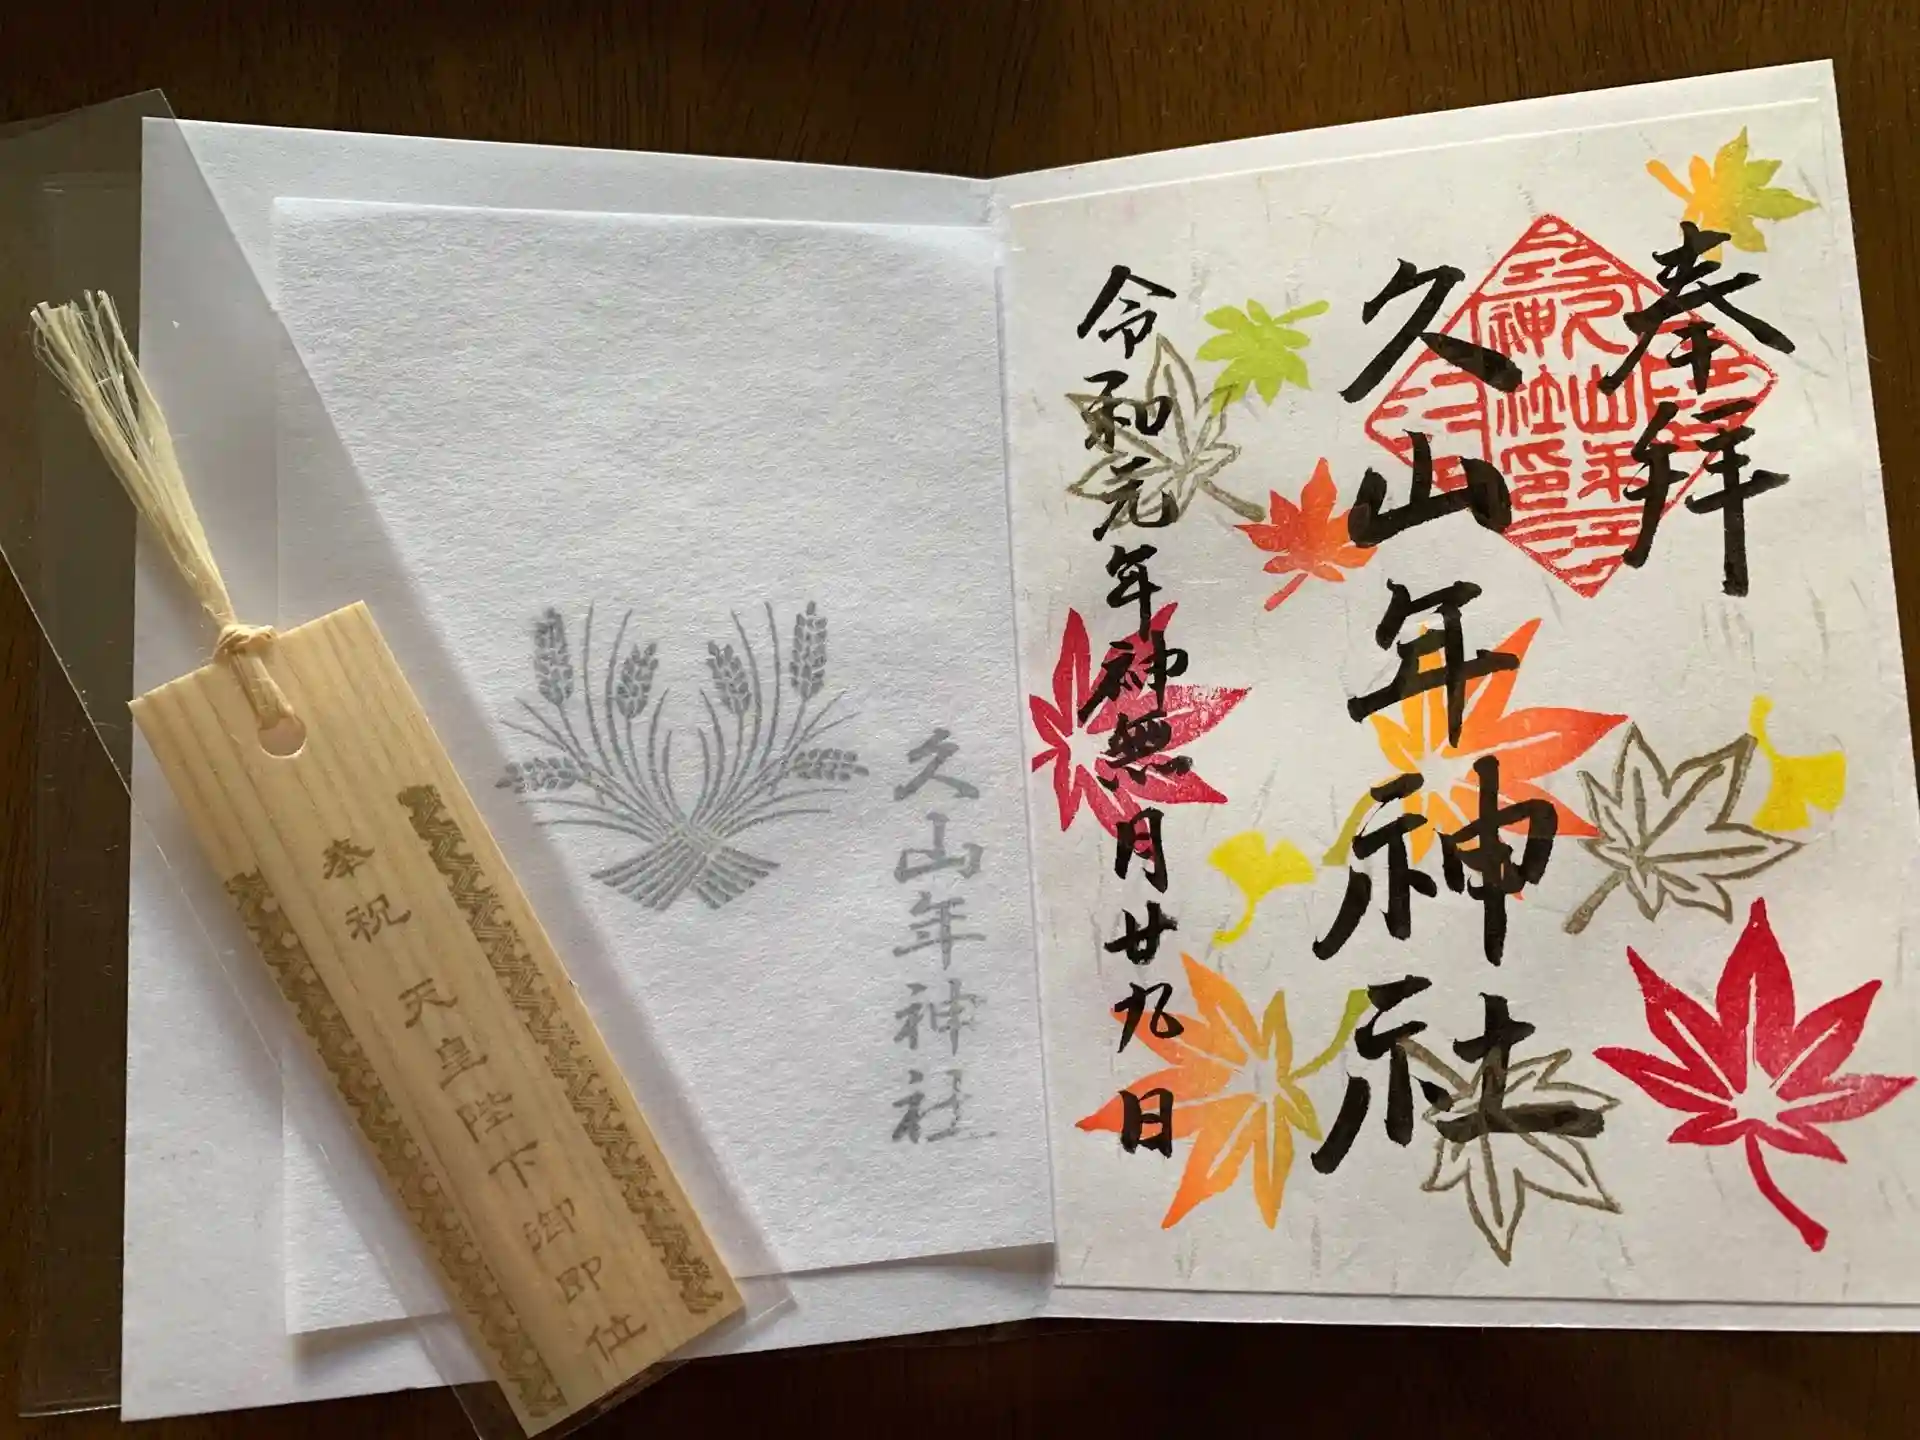 奉拝
久山年神社
久山年神社印
令和元年神無月廿九日
久山年神社
奉祝 天皇陛下御即位